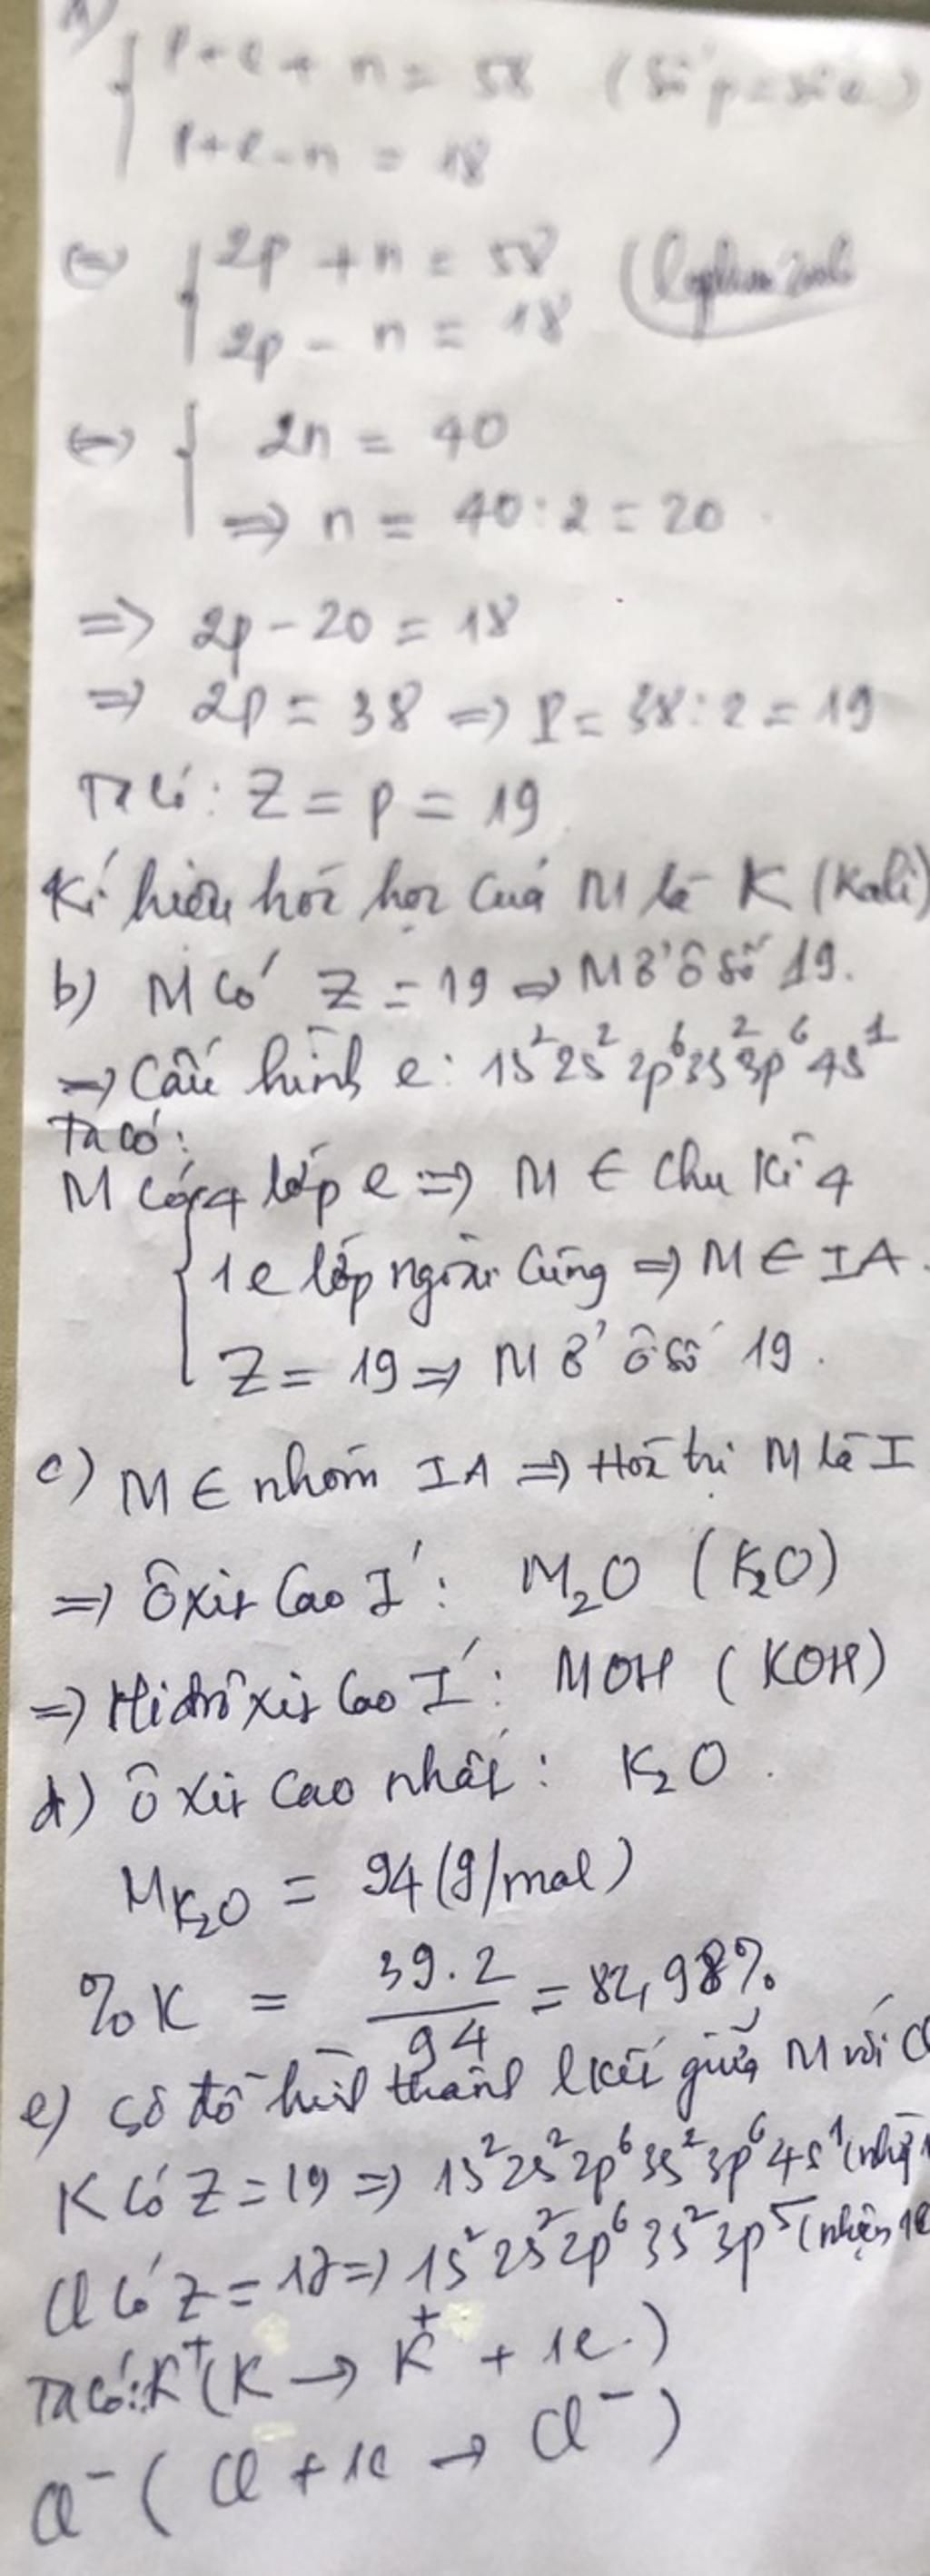 a)
p + e + n = 58 (Số p = số e)
p + e - n = 18
⇔ 2p + n = 58
2p - n = 18
⇔ 2n = 40
⇒ n = 40 : 2 = 20
⇒ 2p - 20 = 18
⇒ 2p = 38 ⇒ P = 38 : 2 = 19
Ta có: Z = p = 19
Kí hiệu hóa học của M là K (Kali)
b) M có Z = 19 ⇒ M ở ô số 19.
⇒ Cấu hình e: 1s² 2s² 2p⁶ 3s² 3p⁶ 4s¹
Ta có:
M có 4 lớp e ⇒ M ∈ Chu kì 4
1e lớp ngoài cùng ⇒ M ∈ IA.
Z = 19 ⇒ M ở ô số 19.
c) M ∈ nhóm IA ⇒ Hóa trị M là I
⇒ Ôxit cao I': M₂O (K₂O)
⇒ Hiđrôxit cao I': MOH (KOH)
d) Ôxit cao nhất: K₂O.
M_K₂O = 94 (g/mol)
%K = 39.2 / 94 = 82,98%
e) Sơ đồ hình thành lkết giữa M với Cl
K có Z = 19 ⇒ 1s² 2s² 2p⁶ 3s² 3p⁶ 4s¹
Cl có Z = 17 ⇒ 1s² 2s² 2p⁶ 3s² 3p⁵ (nhận 1e
Ta có: K⁺ (K → K⁺ + 1e.)
Cl⁻ (Cl + 1e → Cl⁻)